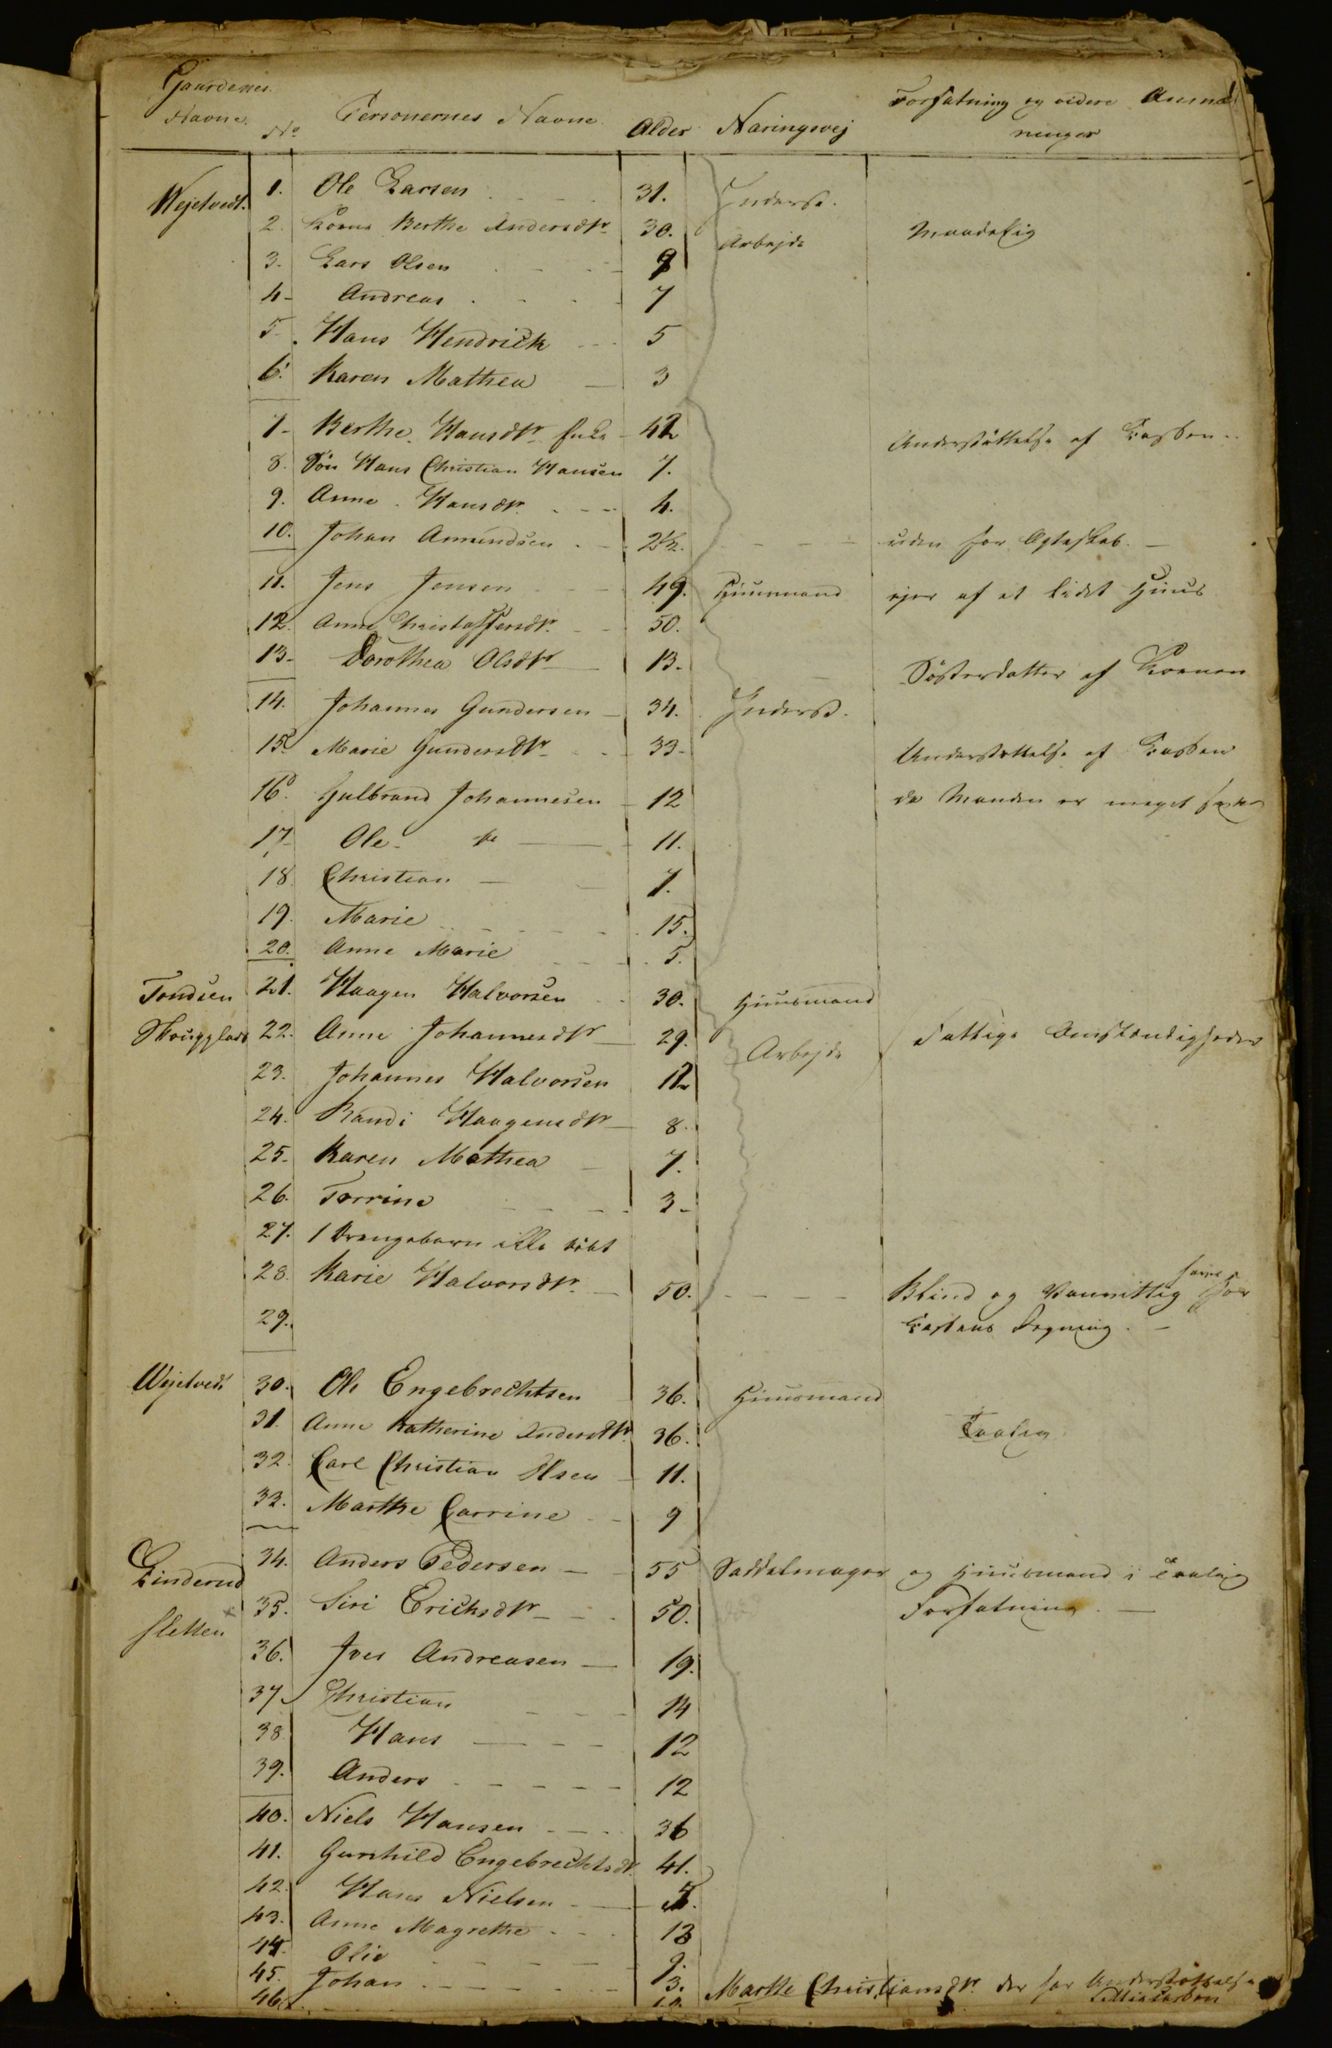 Gaardenes Navne. No Personernes Navne Alder Næringsvej Forfatning og videre Anmærkninger
Wejetvedt. 1. Ole Larsen 31. Inderst.
2. Koene Berthe Andersdtr 30. Arbejde Maadelig
3. Lars Olsen 9
4. Andreas 7
5. Hans Hendrick 5
6. Karen Mathea 3
7. Berthe Hansdtr Enke 42 Understöttelse af Cassen
8. Sön Hans Christian Hansen 7.
9. Anne Hansdtr 4.
10. Johan Amundsen 2½. uden for Ægteskab.
11. Jens Jensen 49. Huusmand ejer af et lidet Huus
12. Anne Christoffersdtr. 50.
13. Dorothea Olsdtr 13. Söster datter af Konen
14. Johannes Gundersen 34. Inderst.
15. Marie Gundersdtr 33 Understöttelse af Cassen
16. Gulbrand Johannesen 12 da Manden er meget
17. Ole 11.
18. Christian 7.
19. Marie 15.
20. Anne Marie 5.
Tondsen 21. Haagen Halvorsen 30. Huusmand
22. Anne Johannesdtr 29. Arbejde Fattige Omstændigheder
23. Johannes Halvorsen 12
24. Randi Haagensdtr 8.
25. Karen Mathea 7.
26. Torrine 3
27. 1 Drengebarn ikke döbt
28. Karie Halvorsdtr. 50. Blind og Vanvittig
29. Cassens Regning.
Wejetvedt 30. Ole Engebrechtsen 36. Huusmand
31. Anne Katherine Andersdtr. 36. Taalig
32. Carl Christian Olsen 11.
33. Marthe Carrine 9
Linderud 34. Anders Pedersen 55 Saddelmager og Huusmand i taalig
sletten 35. Siri Erichsdtr 50. Forfatning.
36. Iver Andreasen 19.
37. Christian 14
38. Hans 12
39. Anders 12
40. Niels Hansen 36
41. Gunhild Engebrechtsdtr. 41.
42. Hans Nielsen
43. Anne Magrethe 13
44. Olie 9.
45. Johan 3.
46. Marthe Christiansdtr. der har Understöttelse